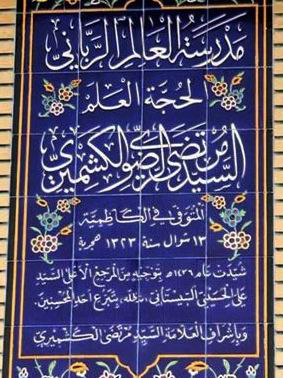 مدرسة العالم الرباني
الحجة العلم
السيد مرتضى الرضوي الكشميري
المتوفى في الكاظمية
١٣ شوال سنة ١٣٢٣ هجرية
شيدت عام ١٤٣٦ه بتوجيه من المرجع الأعلى السيد
علي الحسيني السيستاني دام ظله بتبرع احد المحسنين
وبإشراف العلامة السيد مرتضى الكشميري